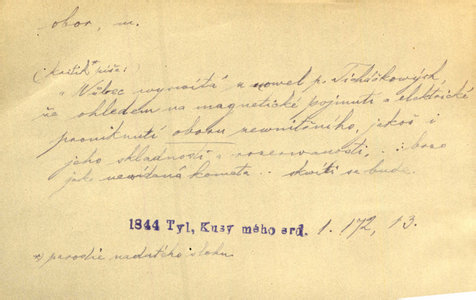 obor, m.
(kritik píše:)
"Vůbec wyniká x nowel p. Ticháčkových,
že ohledem na magnetické pojmutí a elektrické
proniknutí oboru newnitřního, jakož i
jeho skladnosti a rozerwanosti, . . : brzo
jako newítaná kometa . . skwíti se bude.
1844 Tyl, Kusy mého srd. 1. 172, 13.
x) parodie nadutého slohu